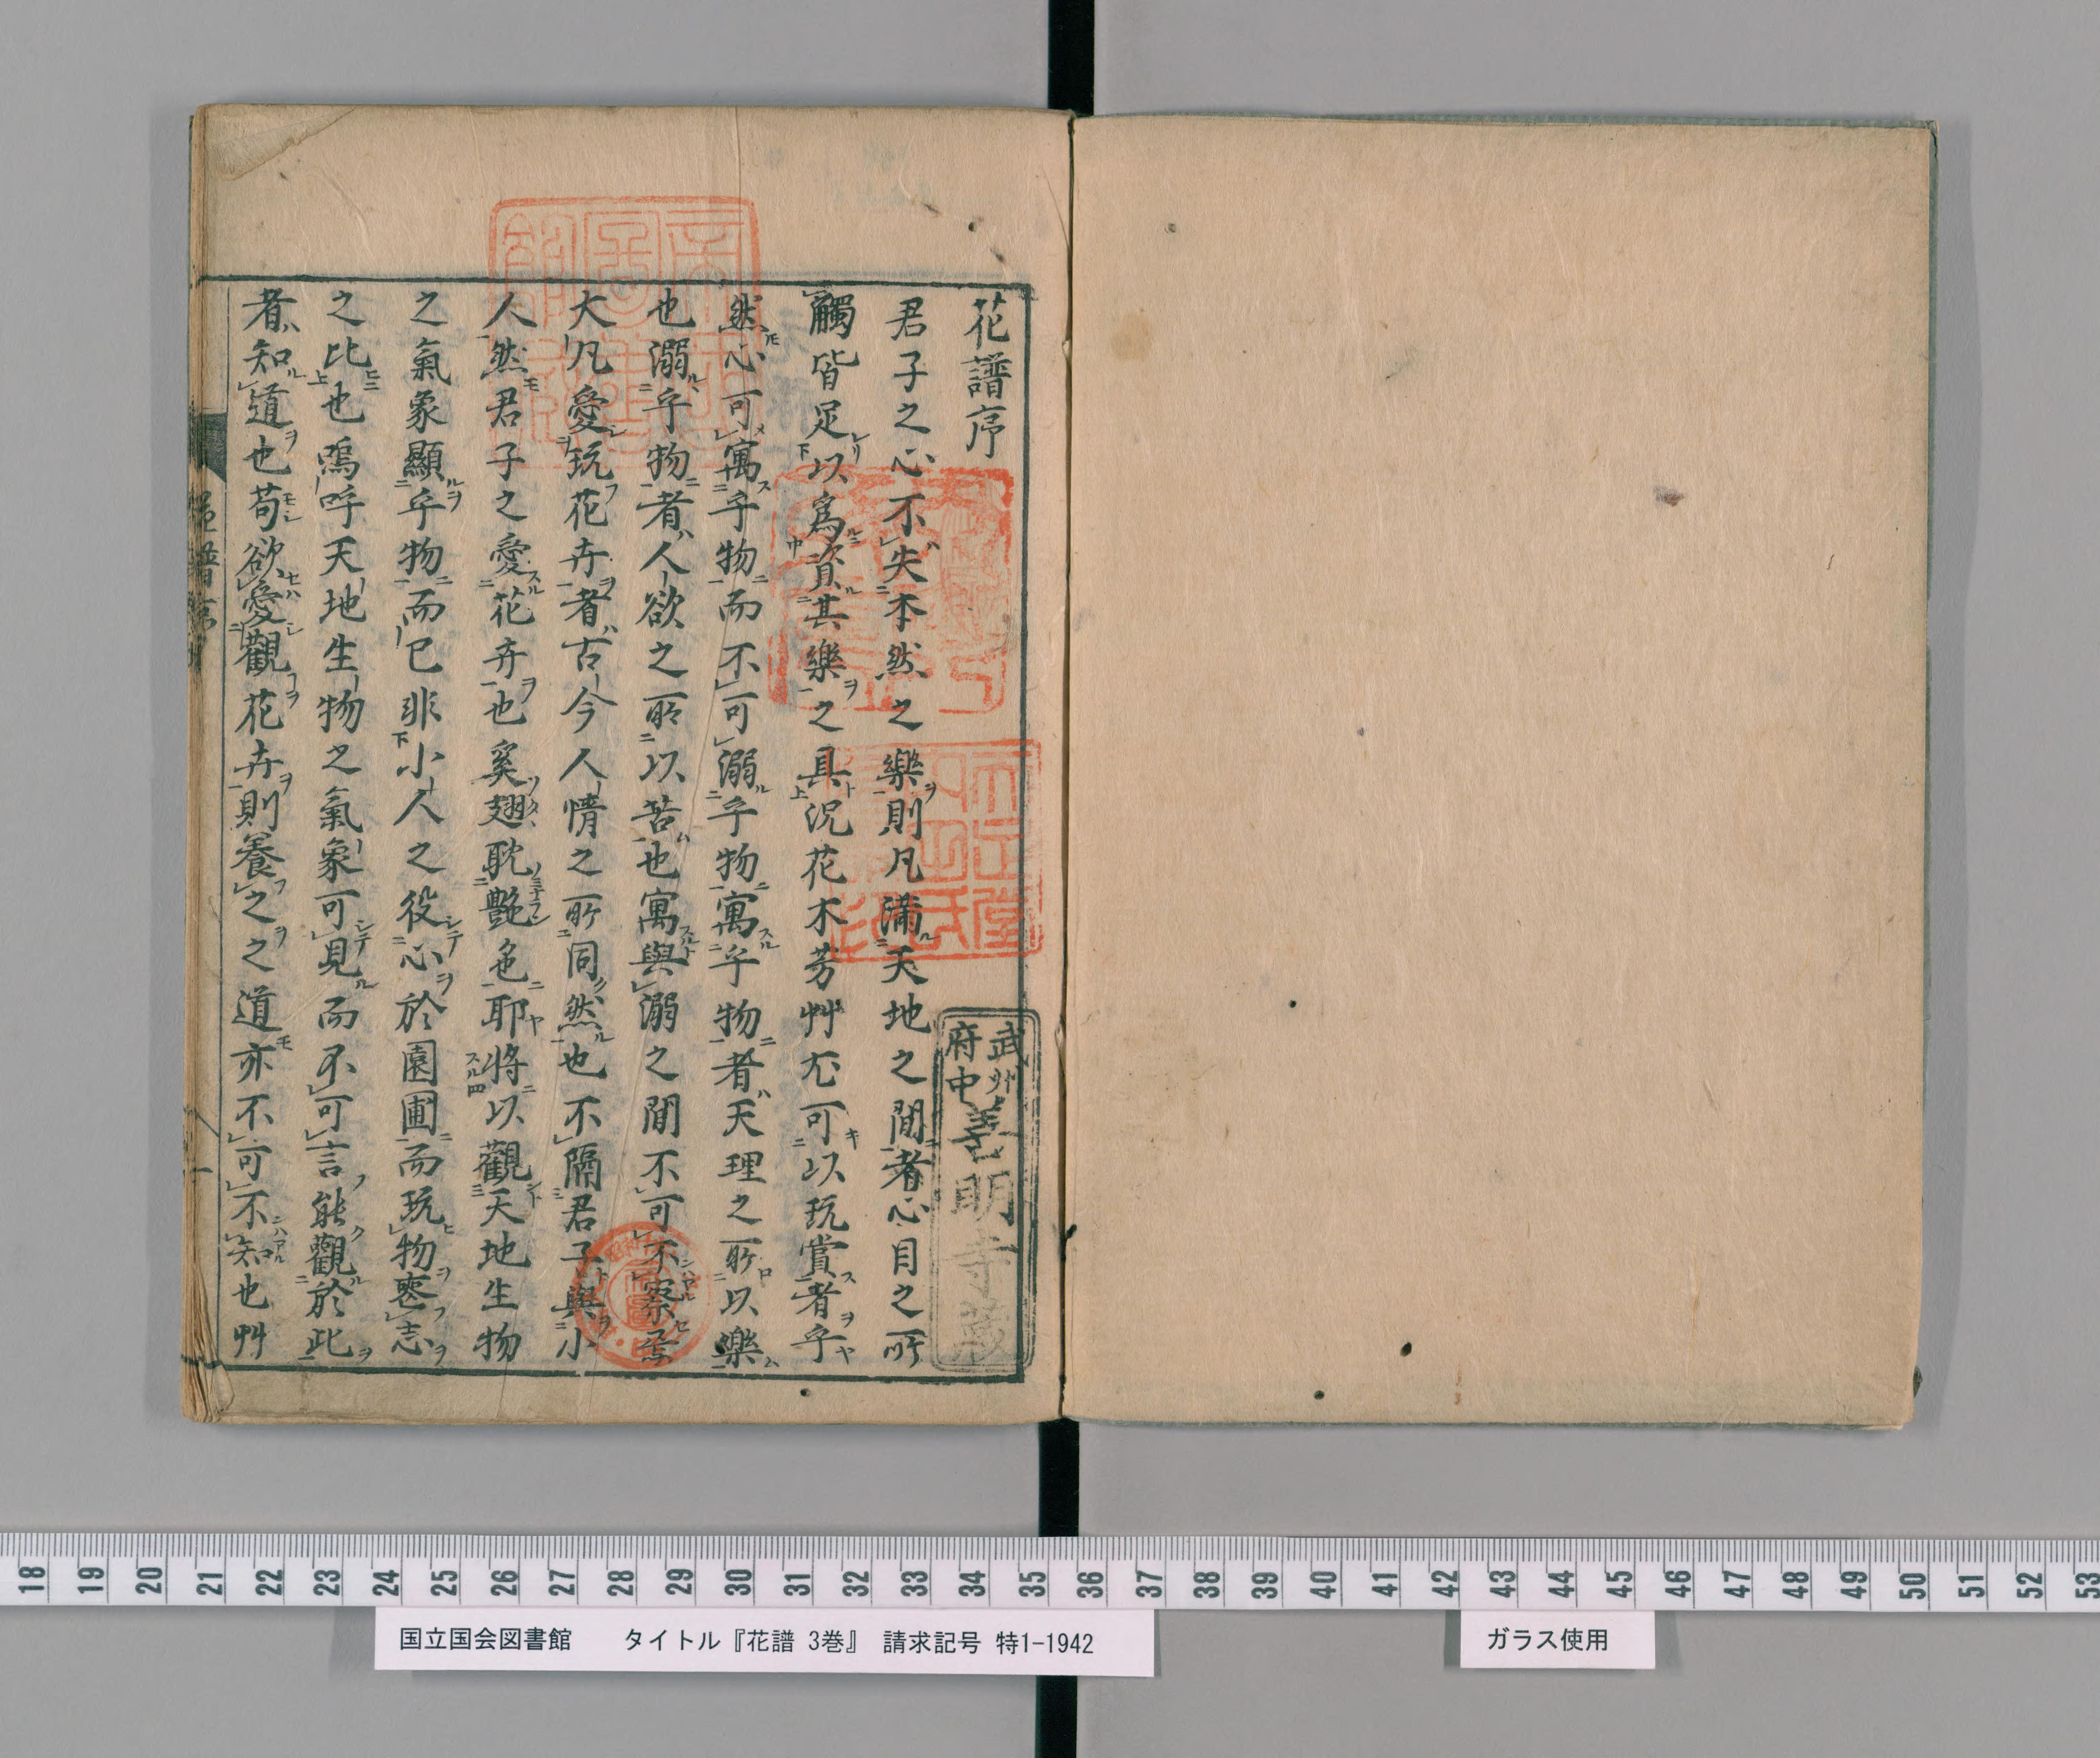 花譜序
君子之心不失本然之樂則凡滿天地之間者心目之所
觸皆足以爲資其樂之具況花木芳艸尤可以玩賞者乎
然心可寓乎物而不可溺乎物寓乎物者天理之所以樂
也溺乎物者人欲之所以苦也寓與溺之間不可不察焉
大凡愛玩花卉者古今人情之所同然也不隔君子與小
人然君子之愛花卉也奚翅耽艶色耶將以觀天地生物
之氣象顯乎物而已非小人之役心於園圃而玩物喪志
之比也嗚呼天地生物之氣象可見而不可言能觀於此
者知道也苟欲愛觀花卉則養之之道亦不可不知也艸
武州
府中
善明寺藏
18 19 20 21 22 23 24 25 26 27 28 29 30 31 32 33 34 35 36 37 38 39 40 41 42 43 44 45 46 47 48 49 50 51 52 53
国立国会図書館 タイトル『花譜 3巻』 請求記号 特1-1942
ガラス使用